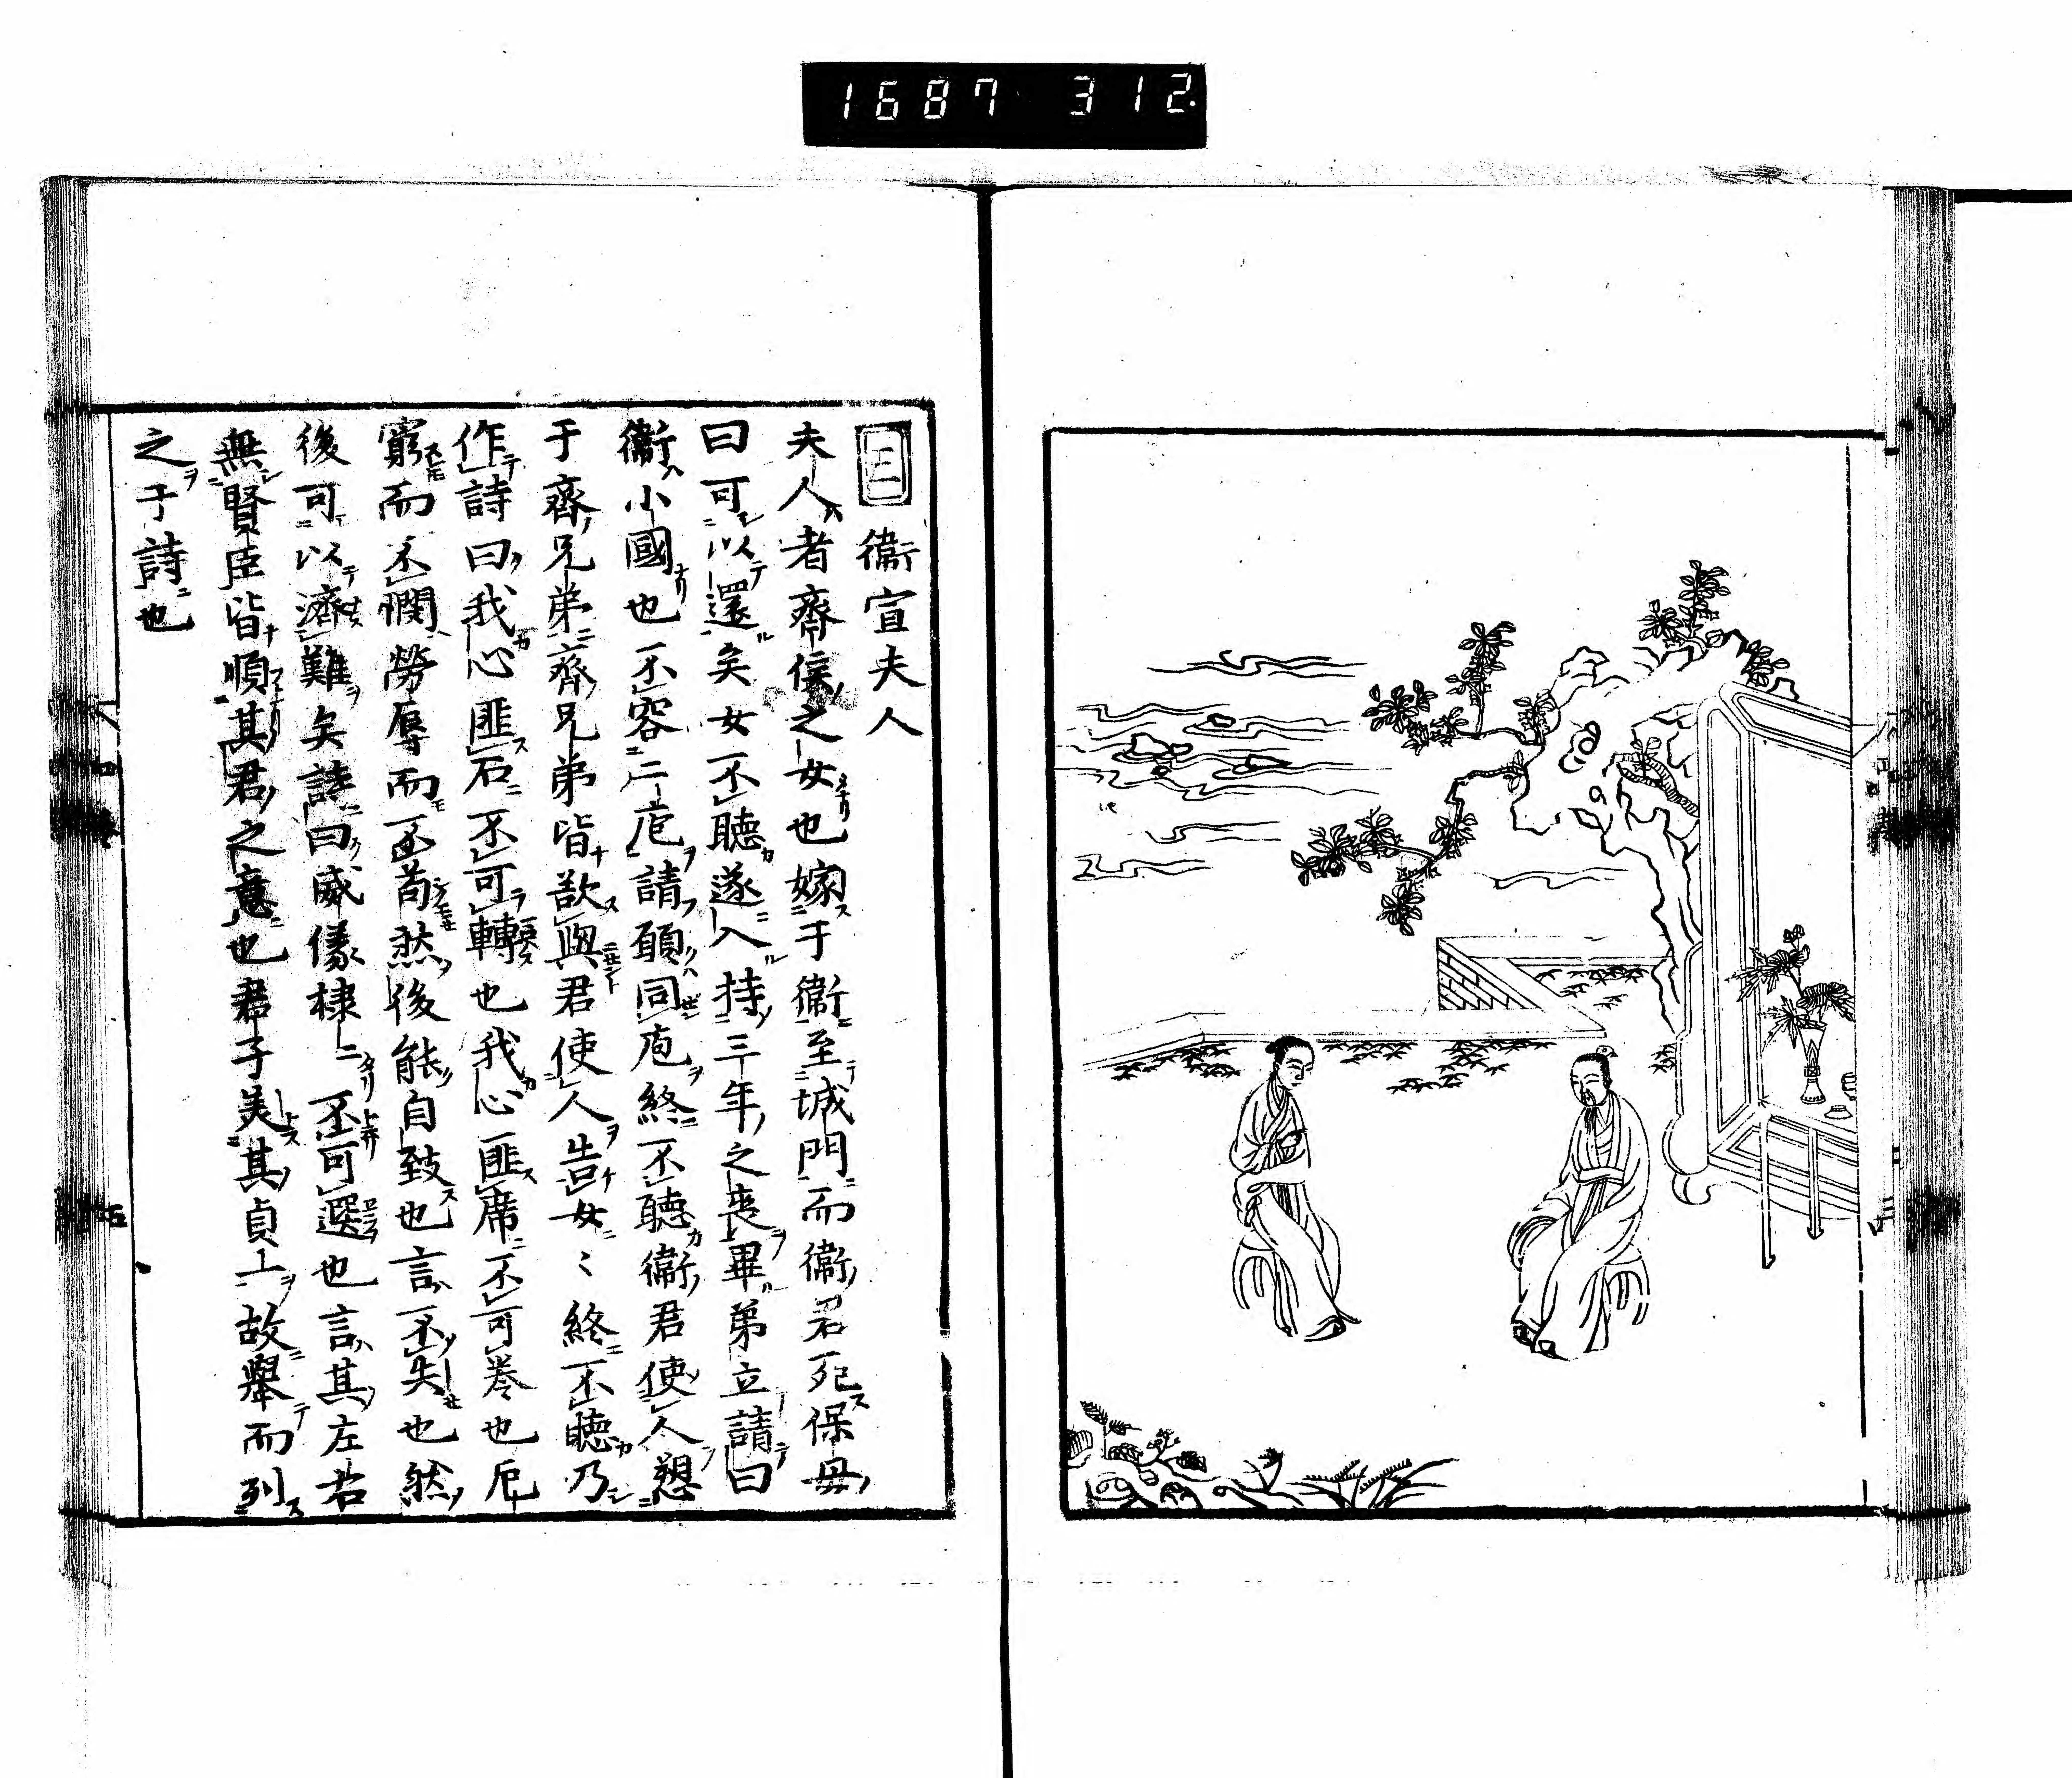 1687 312.
三 衞宣夫人
夫人者齊侯之女也嫁于衞至城門而衞君死保母
曰可以還矣女不聽遂入持三年之喪畢弟立請曰
衞小國也不容二庖請願同庖終不聽衞君使人愬
于齊兄弟齊兄弟皆欲與君使人告女〻終不聽乃
作詩曰我心匪石不可轉也我心匪席不可卷也厄
窮而不憫勞辱而不苟然後能自致也言不失也然
後可以濟難矣詩曰威儀棣〻不可選也言其左右
無賢臣皆順其君之意也君子美其貞一故舉而列
之于詩也